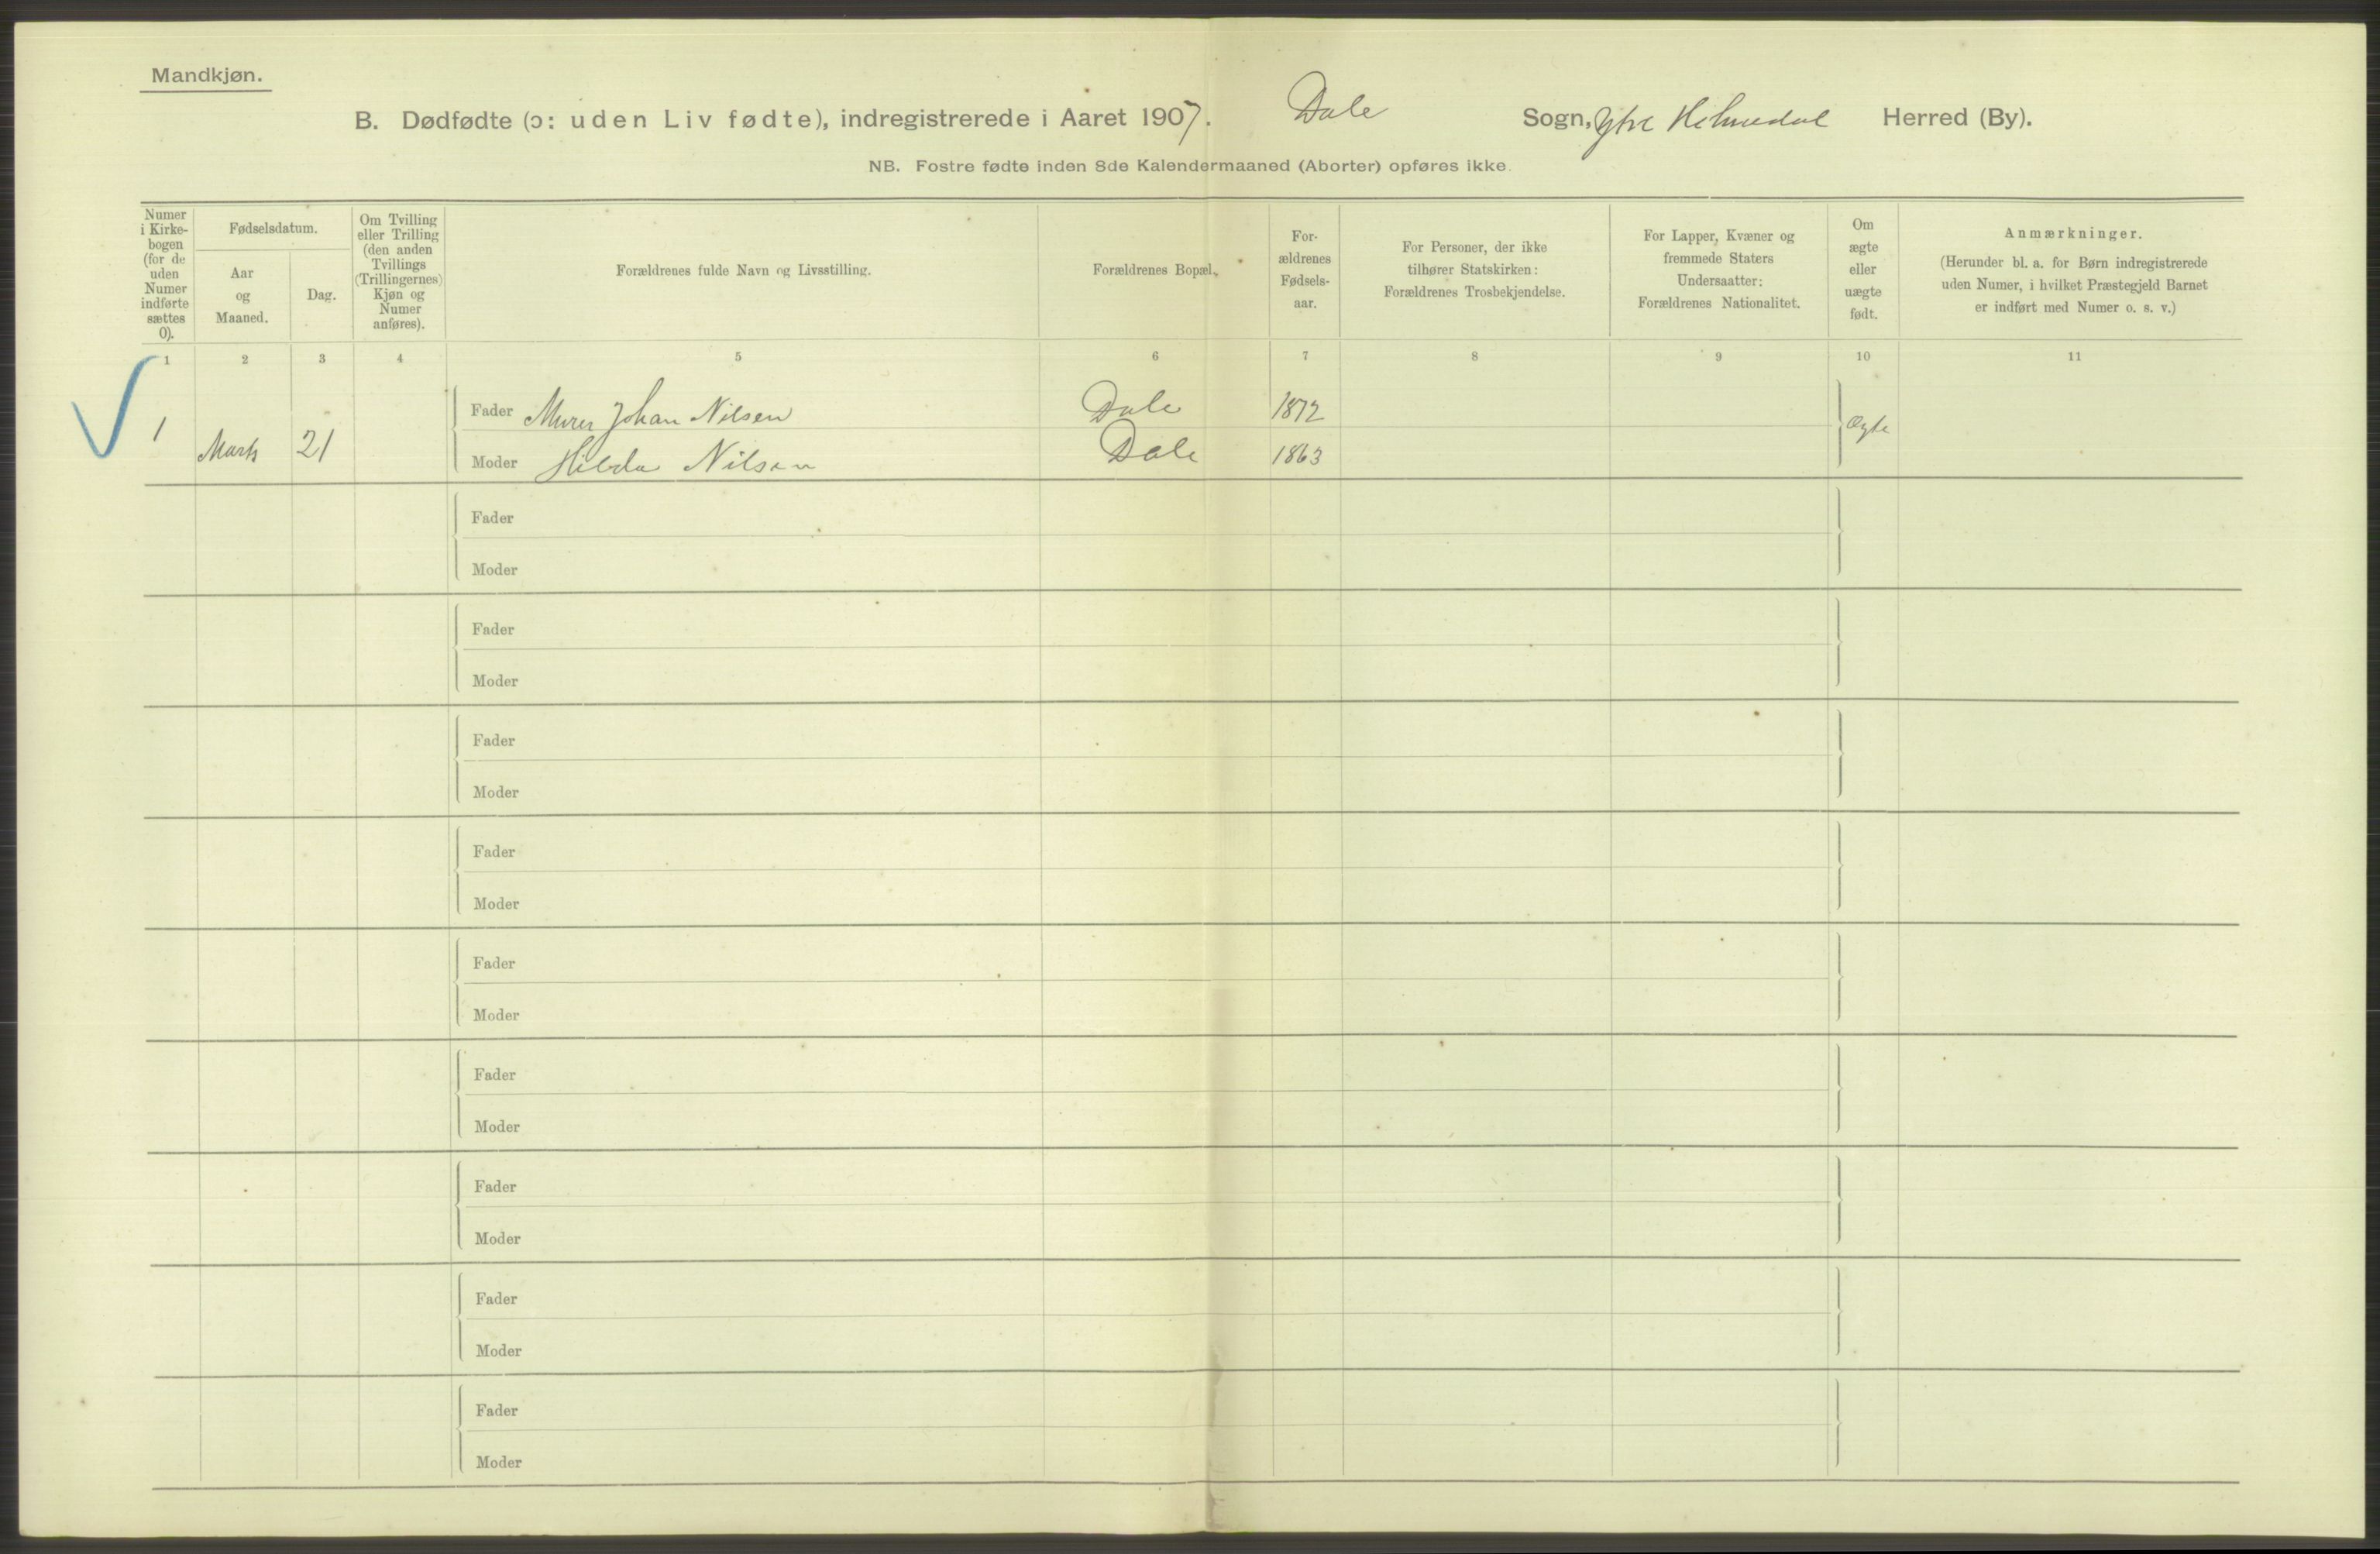 Mandkjøn.
B. Dødfødte (ɔ: uden Liv fødte), indregistrerede i Aaret 1907. Dale Sogn, Ytre Holmedal Herred (By).
NB. Fostre fødte inden 8de Kalendermaaned (Aborter) opføres ikke.
Numer
i Kirke-
bogen
(for de
uden
Numer
indførte
sættes
0).
Fødselsdatum.
Aar
og
Maaned.
Dag.
Om Tvilling
eller Trilling
(den anden
Tvillings
(Trillingernes)
Kjøn og
Numer
anføres).
Forældrenes fulde Navn og Livsstilling.
Forældrenes Bopæl.
For-
ældrenes
Fødsels-
aar.
For Personer, der ikke
tilhører Statskirken:
Forældrenes Trosbekjendelse.
For Lapper, Kvæner og
fremmede Staters
Undersaatter:
Forældrenes Nationalitet.
Om
ægte
eller
uægte
født.
Anmærkninger.
(Herunder bl. a. for Børn indregistrerede
uden Numer, i hvilket Præstegjeld Barnet
er indført med Numer o. s. v.)
1 2 3 4 5 6 7 8 9 10 11
Fader Murer Johan Nilsen Dale 1872
1 Marts 21 Ægte
Moder Hilda Nilsen Dale 1863
Fader
Moder
Fader
Moder
Fader
Moder
Fader
Moder
Fader
Moder
Fader
Moder
Fader
Moder
Fader
Moder
Fader
Moder